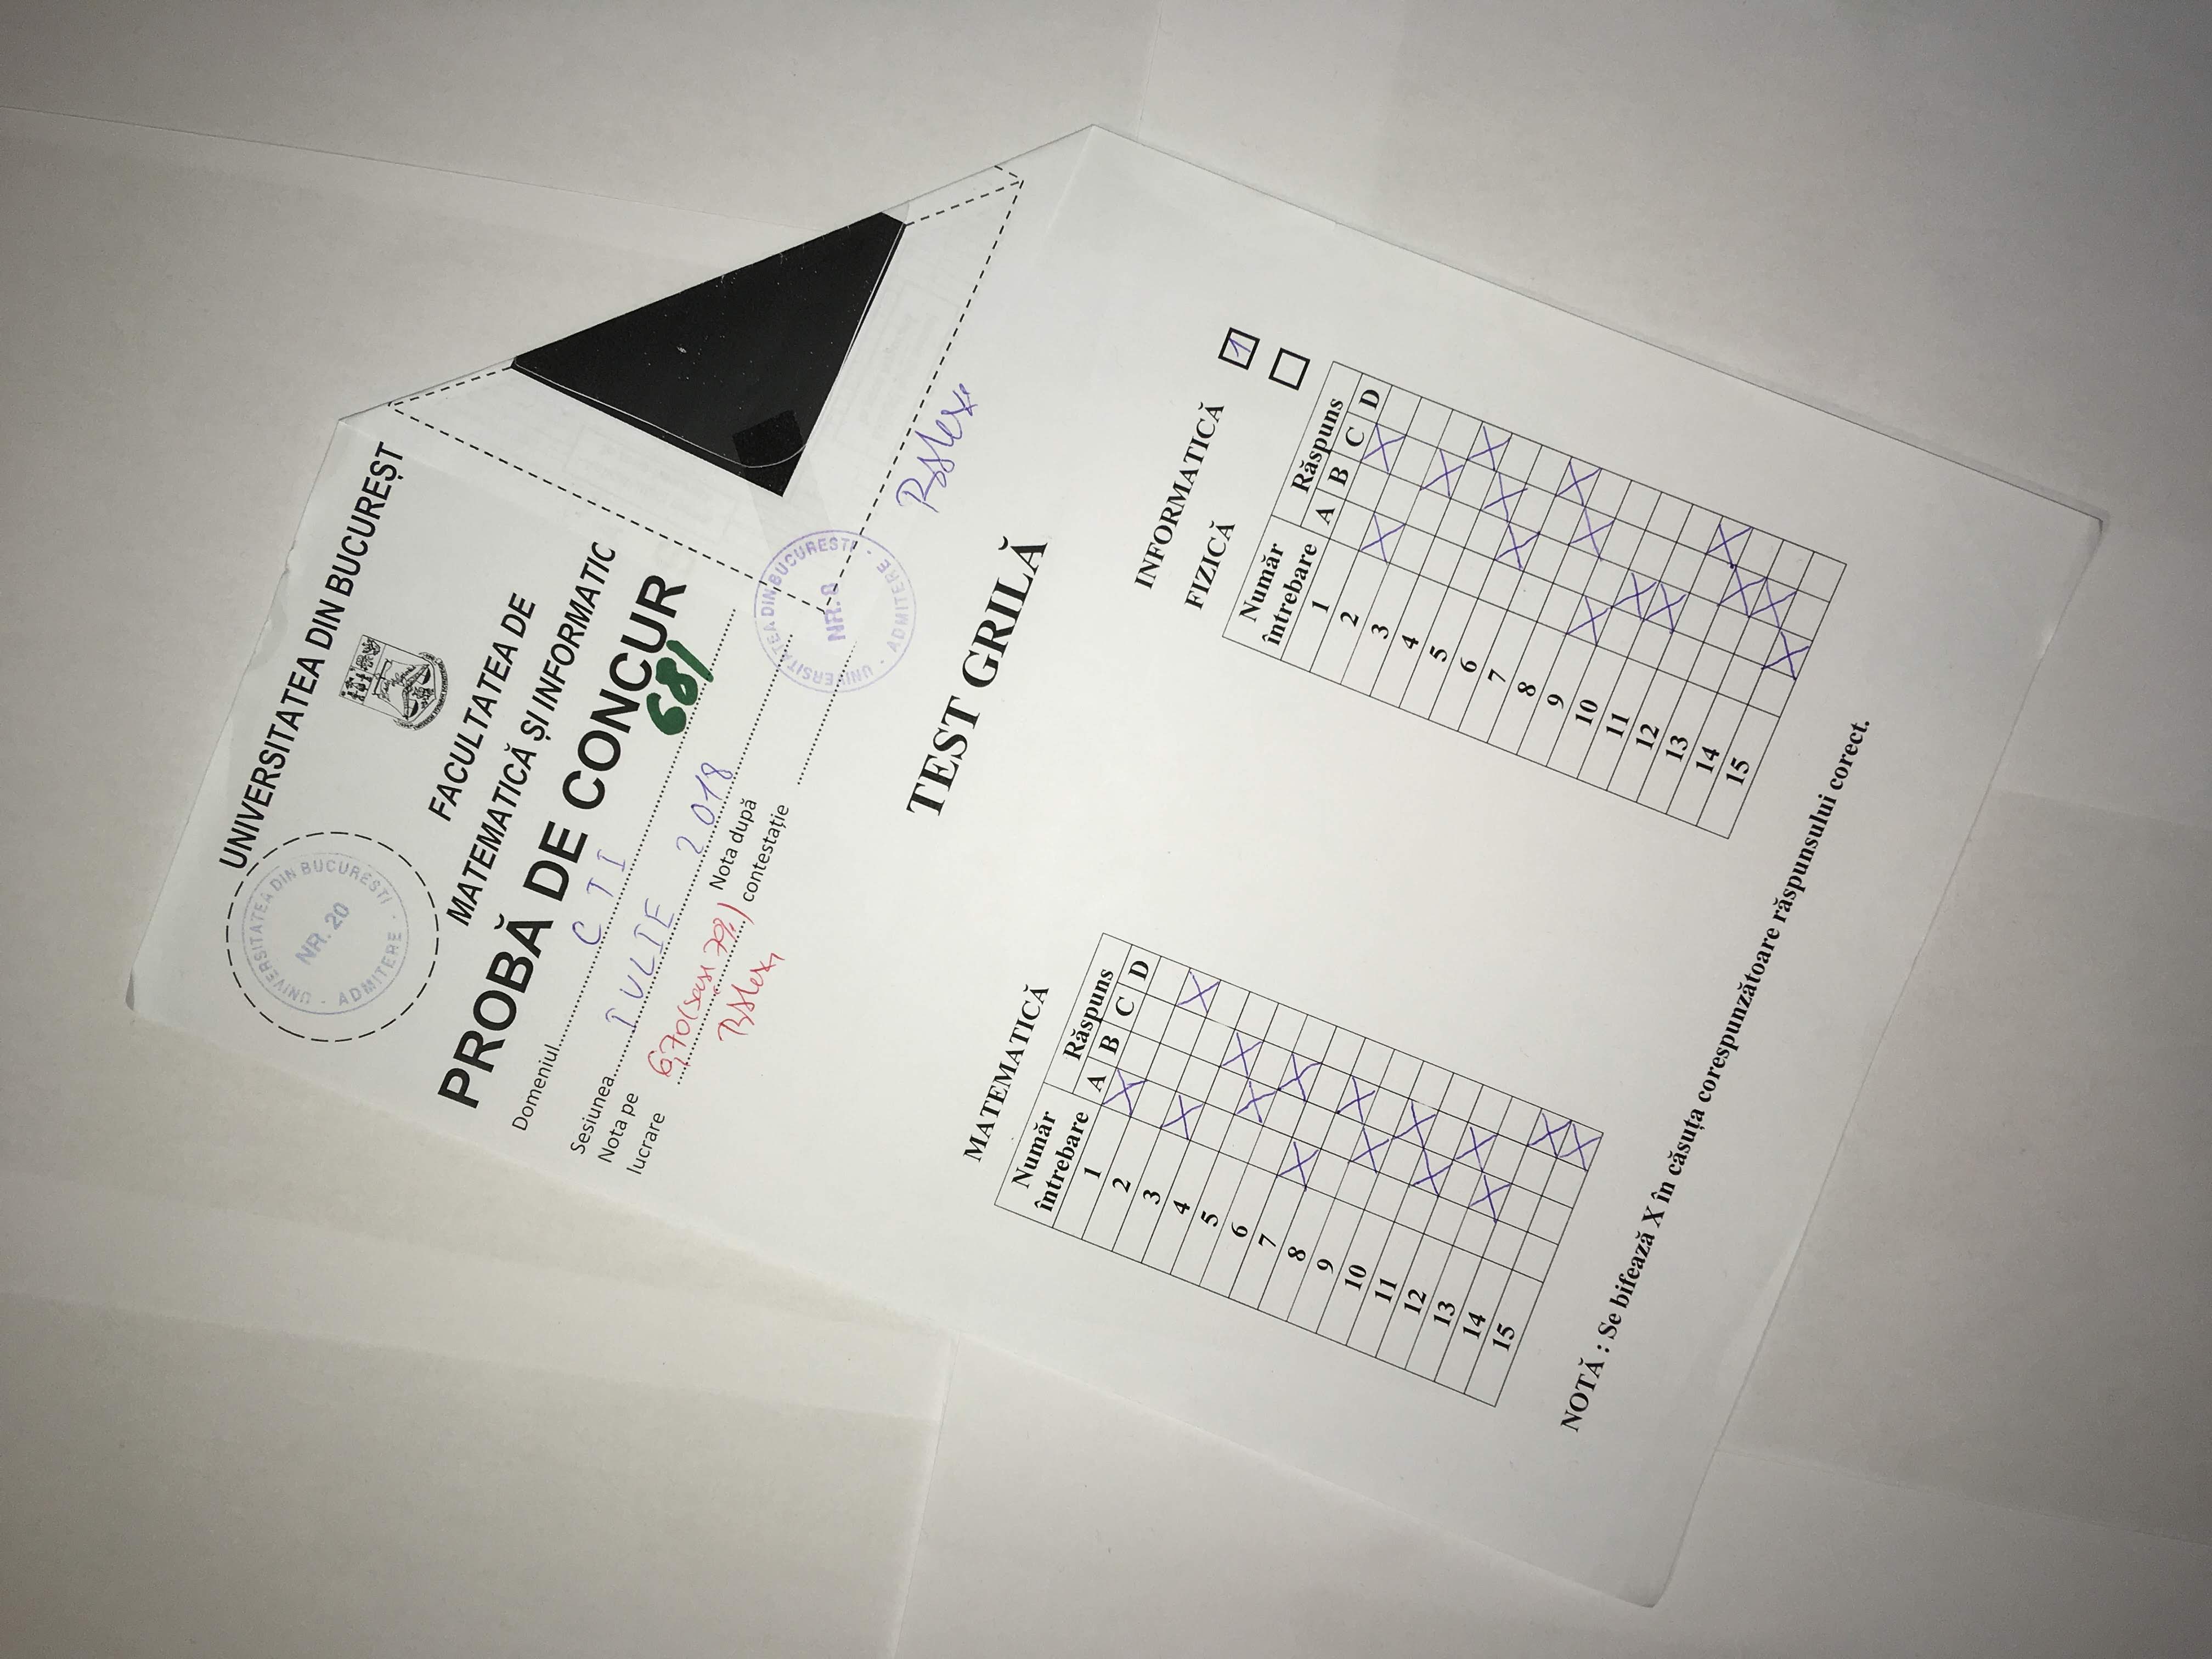 UNIVERSITATEA DIN BUCUREȘT
UNIVERSITATEA DIN BUCUREȘTI · ADMITERE ·
NR. 20
FACULTATEA DE
MATEMATICĂ ȘI INFORMATIC
PROBĂ DE CONCUR
Domeniul CTI
681
Sesiunea IULIE 2018
Nota pe lucrare 6,70 (șase 70%)
Nota după contestație
UNIVERSITATEA DIN BUCUREȘTI · ADMITERE ·
NR. 8
TEST GRILĂ
MATEMATICĂ
Număr întrebare Răspuns
A B C D
1 X
2
3 X X
4
5 X X
6
7 X X
8
9 X X
10
11 X X
12
13 X X
14 X
15 X
INFORMATICĂ 1
FIZICĂ
Număr întrebare Răspuns
A B C D
1 X
2 X
3 X
4 X
5 X
6 X
7 X
8 X
9 X
10 X
11 X
12 X
13 X
14 X
15 X
NOTĂ : Se bifează X în căsuța corespunzătoare răspunsului corect.